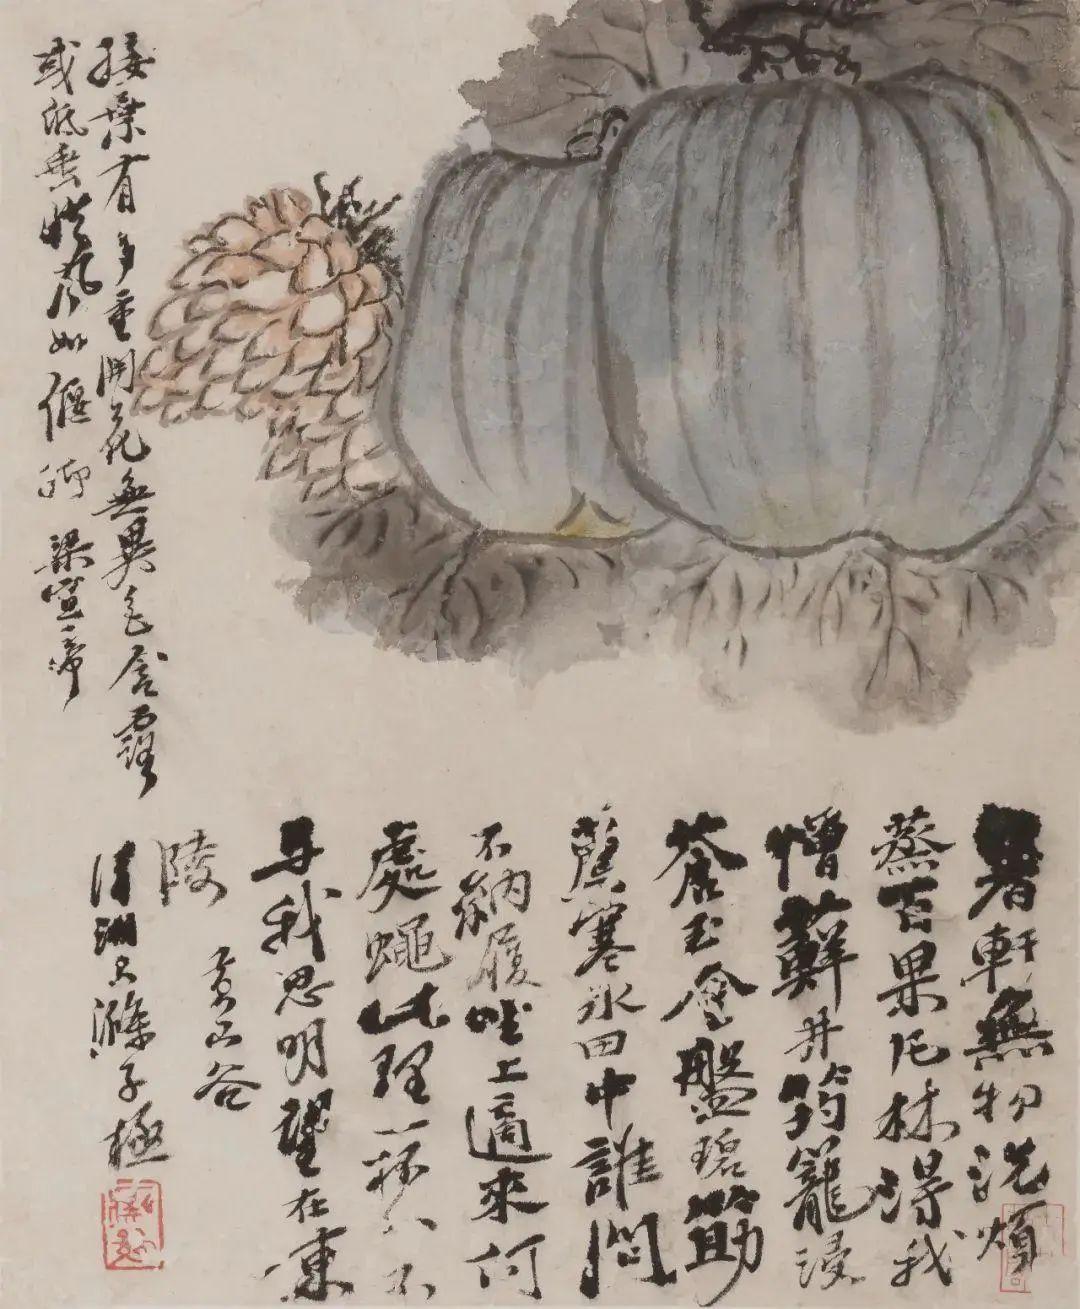 接葉有多重開花無異色含露
或低垂從風如偃抑 梁宣帝
暑軒無物洗煩
蒸百果凡材得我
憎蘚井筠籠浸
蒼玉金盤碧筯
薦寒冰田中誰問
不納履坐上適來何
處蠅此理一杯分不
与我思明望在東
陵 黃山谷
清湘大滌子極